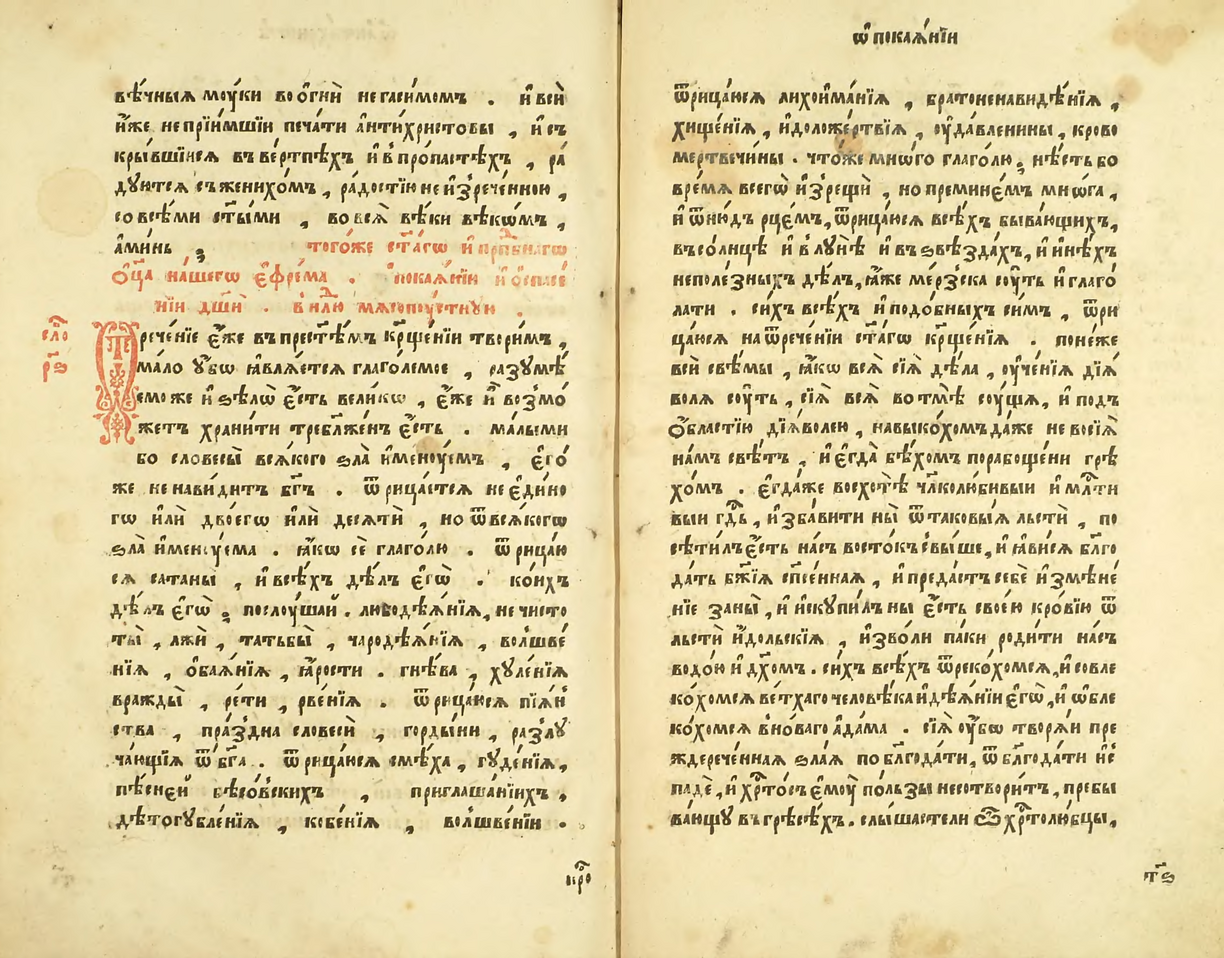 вѣ́чныѧ мꙋ́ки во о҆гнѝ не гаси́момъ . и҆ всѝ
и҆́же не прїи́мшїи печа́ти а҆нти́христовы , и҆ съ
кры́вшїисѧ въ ве́ртпѣхъ и҆ в̾ про́пастѣхъ , ра́
дꙋютсѧ съ женихо́мъ , ра́достїю не и҆зрече́нною ,
со всѣ́ми ст҃ы́ми , во всѧ̀ вѣ́ки вѣ́кѡмъ ,
а҆ми́нь ,
того́же ст҃а́гѡ и҆ прпⷣбнагѡ
ѻ҆ц҃а̀ на́шегѡ є҆фре́ма . ѡ҆ покаѧ́нїи и҆ ѡ҆ спасе́
нїи дш҃ѝ . в̾ нлⷣю мѧсопꙋ́стнꙋю .
сло́
рѕ҃
Ѿрече́нїе є҆́же въ прест҃ѣ́мъ кр҃ще́нїи твори́мъ ,
ма́ло ᲂу҆́бѡ ꙗ҆влѧ́етсѧ глаго́лемое , разꙋмѣ́
емо же и҆ ѕѣлѡ̀ є҆́сть вели́кѡ , є҆́же и҆ возмо́
жетъ храни́ти требла́женъ є҆́сть . ма́лыми
бо словесы̀ всѧ́кого ѕла̀ и҆менꙋ́емъ , є҆го́
же не нави́дитъ бг҃ъ . ѿрица́етсѧ не є҆ди́но
гѡ и҆лѝ двоегѡ̀ и҆лѝ десѧтѝ , но ѿ всѧ́когѡ
ѕла̀ и҆менꙋ́ема . ꙗ҆́кѡ сѐ глаго́лю . ѿрица́ю
сѧ сатаны̀ , и҆ всѣ́хъ дѣ́лъ є҆гѡ̀ . ко́ихъ
дѣ́лъ є҆гѡ̀ , послꙋ́шай . любодѣѧ́нїѧ , не чисто
ты̀ , лжѝ , татьбы̀ , чародѣѧ́нїѧ , волшве́
нїѧ , ѻ҆баѧ́нїѧ , ꙗ҆́рости . гнѣ́ва , хꙋле́нїѧ
вражды̀ , ре́ти , рве́нїѧ . ѿрица́юсѧ пїѧ́н
ства , пра́здна словесѝ , горды́ни , разлꙋ
ча́ющїѧ ѿ бг҃а . ѿрица́юсѧ смѣ́ха , гꙋде́нїѧ ,
пѣ́сней бѣсо́вскихъ , приглаша́нїихъ ,
дѣтогꙋбле́нїѧ , кобе́нїѧ , волшве́нїи .
кро́
ѡ҆ покаѧ́нїи
ѿрица́юсѧ лихои҆ма́нїѧ , братоненавидѣ́нїѧ ,
хище́нїѧ , и҆доложе́ртвїѧ , ᲂу҆да́вленины , крово
мертвечи́ны . что́же мнѡ́го глаго́лю , нѣ́сть бо
вре́мѧ всегѡ̀ и҆зрещѝ , но премине́мъ мнѡ́га ,
и҆ ѿню́дъ рце́мъ , ѿрица́юсѧ всѣ́хъ быва́ющихъ ,
въ со́лнцѣ и҆ в̾ лꙋнѣ̀ и҆ въ ѕвѣ́здахъ , и҆ и҆нѣ́хъ
неполе́зныхъ дѣ́лъ , ꙗ҆́же ме́рзска сꙋ́ть и҆ глаго́
лати . си́хъ всѣ́хъ и҆ подо́бныхъ си́мъ , ѿри
ца́юсѧ на ѿрече́нїи ст҃а́гѡ кр҃ще́нїѧ . поне́же
всѝ свѣ́мы , ꙗ҆́кѡ всѧ̀ сїѧ̀ дѣ́ла , ᲂу҆че́нїѧ дїѧ́
волѧ сꙋ́ть , сїѧ̀ всѧ̀ во тмѣ̀ сꙋ́щїѧ , и҆ подъ
ѻ҆́бластїю дїѧ́волею , навыко́хомъ да́же не восїѧ̀
на́мъ свѣ́тъ , и҆ є҆гда̀ бѣ́хомъ порабоще́ни грѣ
хо́мъ . є҆гда́же восхотѣ̀ чл҃колюби́выи и҆ млⷭ҇ти
выи гдⷭ҇ь , и҆зба́вити ны̀ ѿ таковы́ѧ льстѝ , по
сѣти́лъ є҆́сть на́съ восто́къ свы́ше , и҆ ꙗ҆ви́сѧ бл҃го
да́ть бж҃їѧ спⷭ҇е́ннаѧ , и҆ предастъ себѐ и҆змѣне́
нїе за ны̀ , и҆ и҆скꙋпи́лъ ны̀ є҆́сть свое́ю кро́вїю ѿ
льстѝ и҆́дольскїѧ , и҆зво́ли па́ки роди́ти на́съ
водо́ю и҆ дх҃омъ . си́хъ всѣ́хъ ѿреко́хомсѧ , и҆ совле
ко́хомсѧ ве́тхаго человѣ́ка и҆ дѣѧ́нїи є҆гѡ̀ , и҆ ѡ҆бле
ко́хомсѧ в̾ но́ваго а҆да́ма . сїѧ̀ ᲂу҆́бѡ творѧ́и пре
ждерече́ннаѧ ѕла́ѧ по бл҃года́ти , ѿ бл҃года́ти и҆с
падѐ , и҆ хрⷭ҇то́съ є҆мꙋ̀ по́льзы не сотвори́тъ , пребы
ва́ющꙋ въ грѣсѣ́хъ . слы́шасте ли ѽ хрⷭ҇толю́бцы ,
тѕ҃